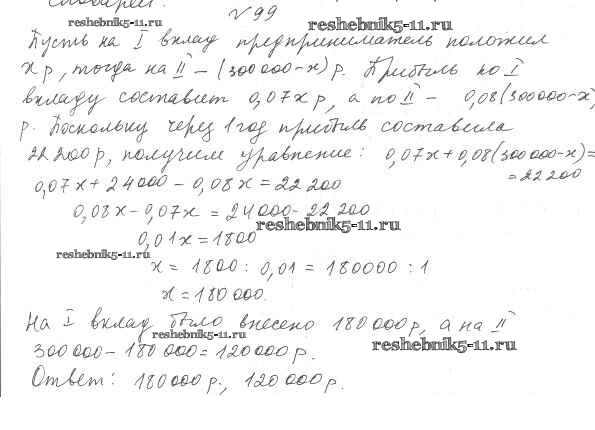 Словарей.
reshebnik5-11.ru
№ 99
reshebnik5-11.ru
Пусть на I вклад предприниматель положил
x р, тогда на II – (300 000 – x) р. Прибыль по I
вкладу составит 0,07x р, а по II – 0,08(300000 – x)
р. Поскольку через 1 год прибыль составила
22 200 р, получим уравнение: 0,07x + 0,08(300000 – x) =
= 22 200
0,07x + 24000 – 0,08x = 22 200
0,08x – 0,07x = 24000 – 22 200
reshebnik5-11.ru
0,01x = 1800
reshebnik5-11.ru
x = 1800 : 0,01 = 180000 : 1
x = 180 000.
На I вклад было внесено 180 000 р, а на II
reshebnik5-11.ru
300 000 – 180 000 = 120 000 р.
reshebnik5-11.ru
Ответ: 180 000 р., 120 000 р.